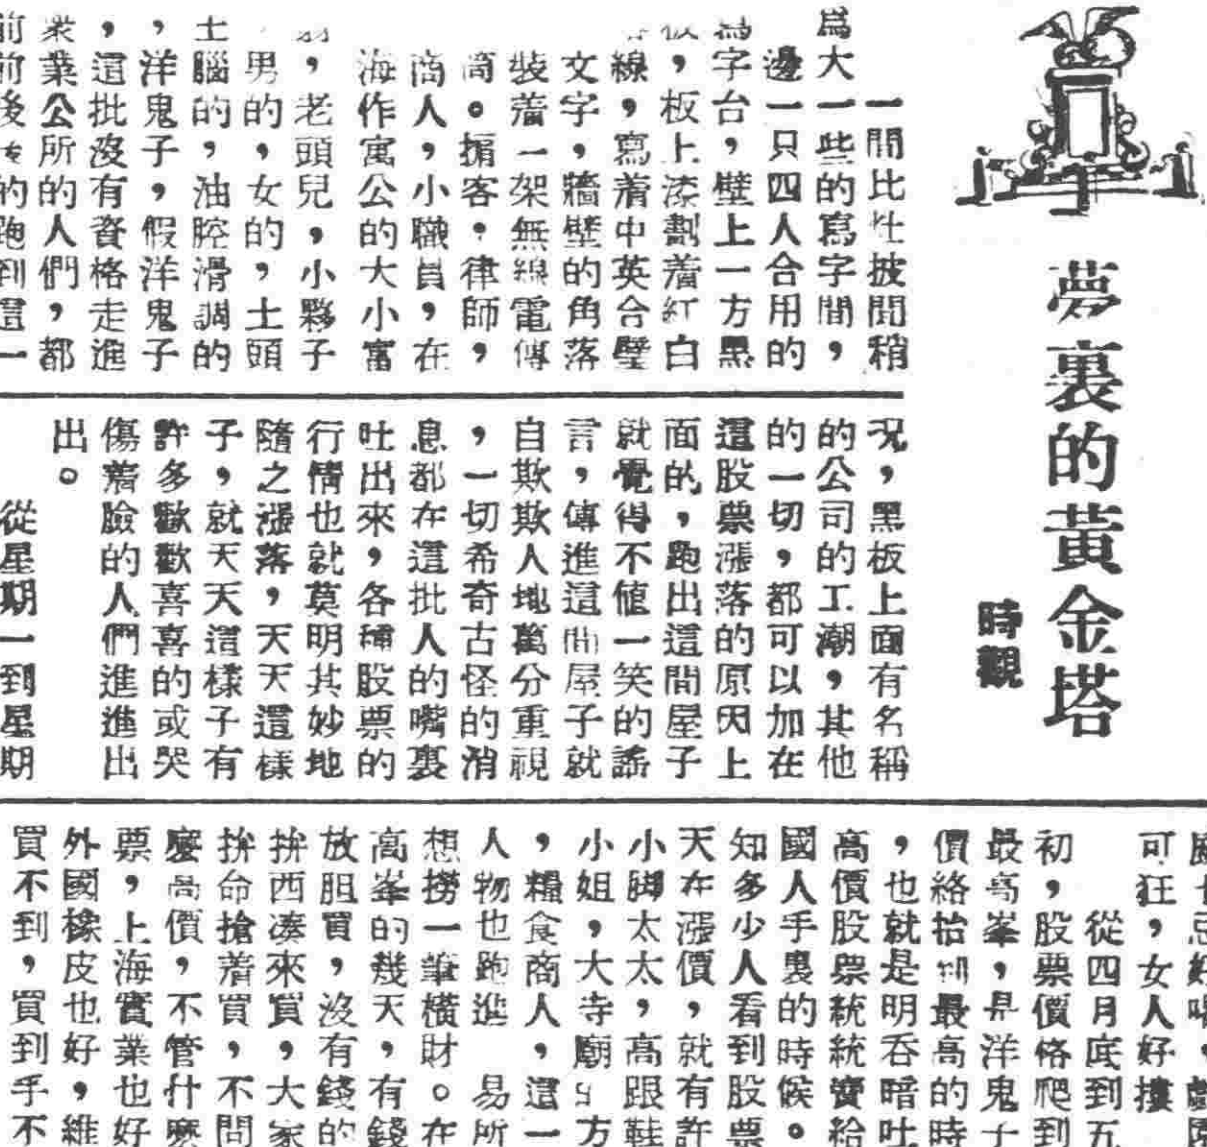 夢裏的黃金塔
時觀
一間比灶披間稍
爲大一些的寫字間，
邊一只四人合用的
寫字台，壁上一方黑
板，板上漆劃着紅白
線，寫着中英合璧
文字，牆壁的角落
裝着一架無線電傳
筒。掮客，律師，
商人，小職員，在
海作寓公的大小富
翁，老頭兒，小夥子
男的，女的，土頭
土腦的，油腔滑調的
，洋鬼子，假洋鬼子
，這批沒有資格走進
業公所的人們，都
前前後的跑到這一
況，黑板上面有名稱
的公司的工潮，其他
的一切，都可以加在
這股票漲落的原因上
面的，跑出這間屋子
就覺得不値一笑的謠
言，傳進這間屋子就
自欺欺人地萬分重視
，一切希奇古怪的消
息都在這批人的嘴裏
吐出來，各種股票的
行情也就莫明其妙地
隨之漲落，天天這樣
子，就天天這樣子有
許多歡歡喜喜的或哭
傷着臉的人們進進出
出。
從星期一到星期
可狂，女人好摟
從四月底到五
初，股票價格爬到
最高峯，是洋鬼子
價絡抬到最高的時
，也就是明吞暗吐
高價股票統統賣給
國人手裏的時候。
知多少人看到股票
天在漲價，就有許
小脚太太，高跟鞋
小姐，大寺廟方
，糧食商人，這一
人物也跑進易所
想撈一筆橫財。在
高峯的幾天，有錢
放胆買，沒有錢的
拚西湊來買，大家
拚命搶着買，不問
麼高價，不管什麼
票，上海實業也好
外國橡皮也好，維
買不到，買到手不